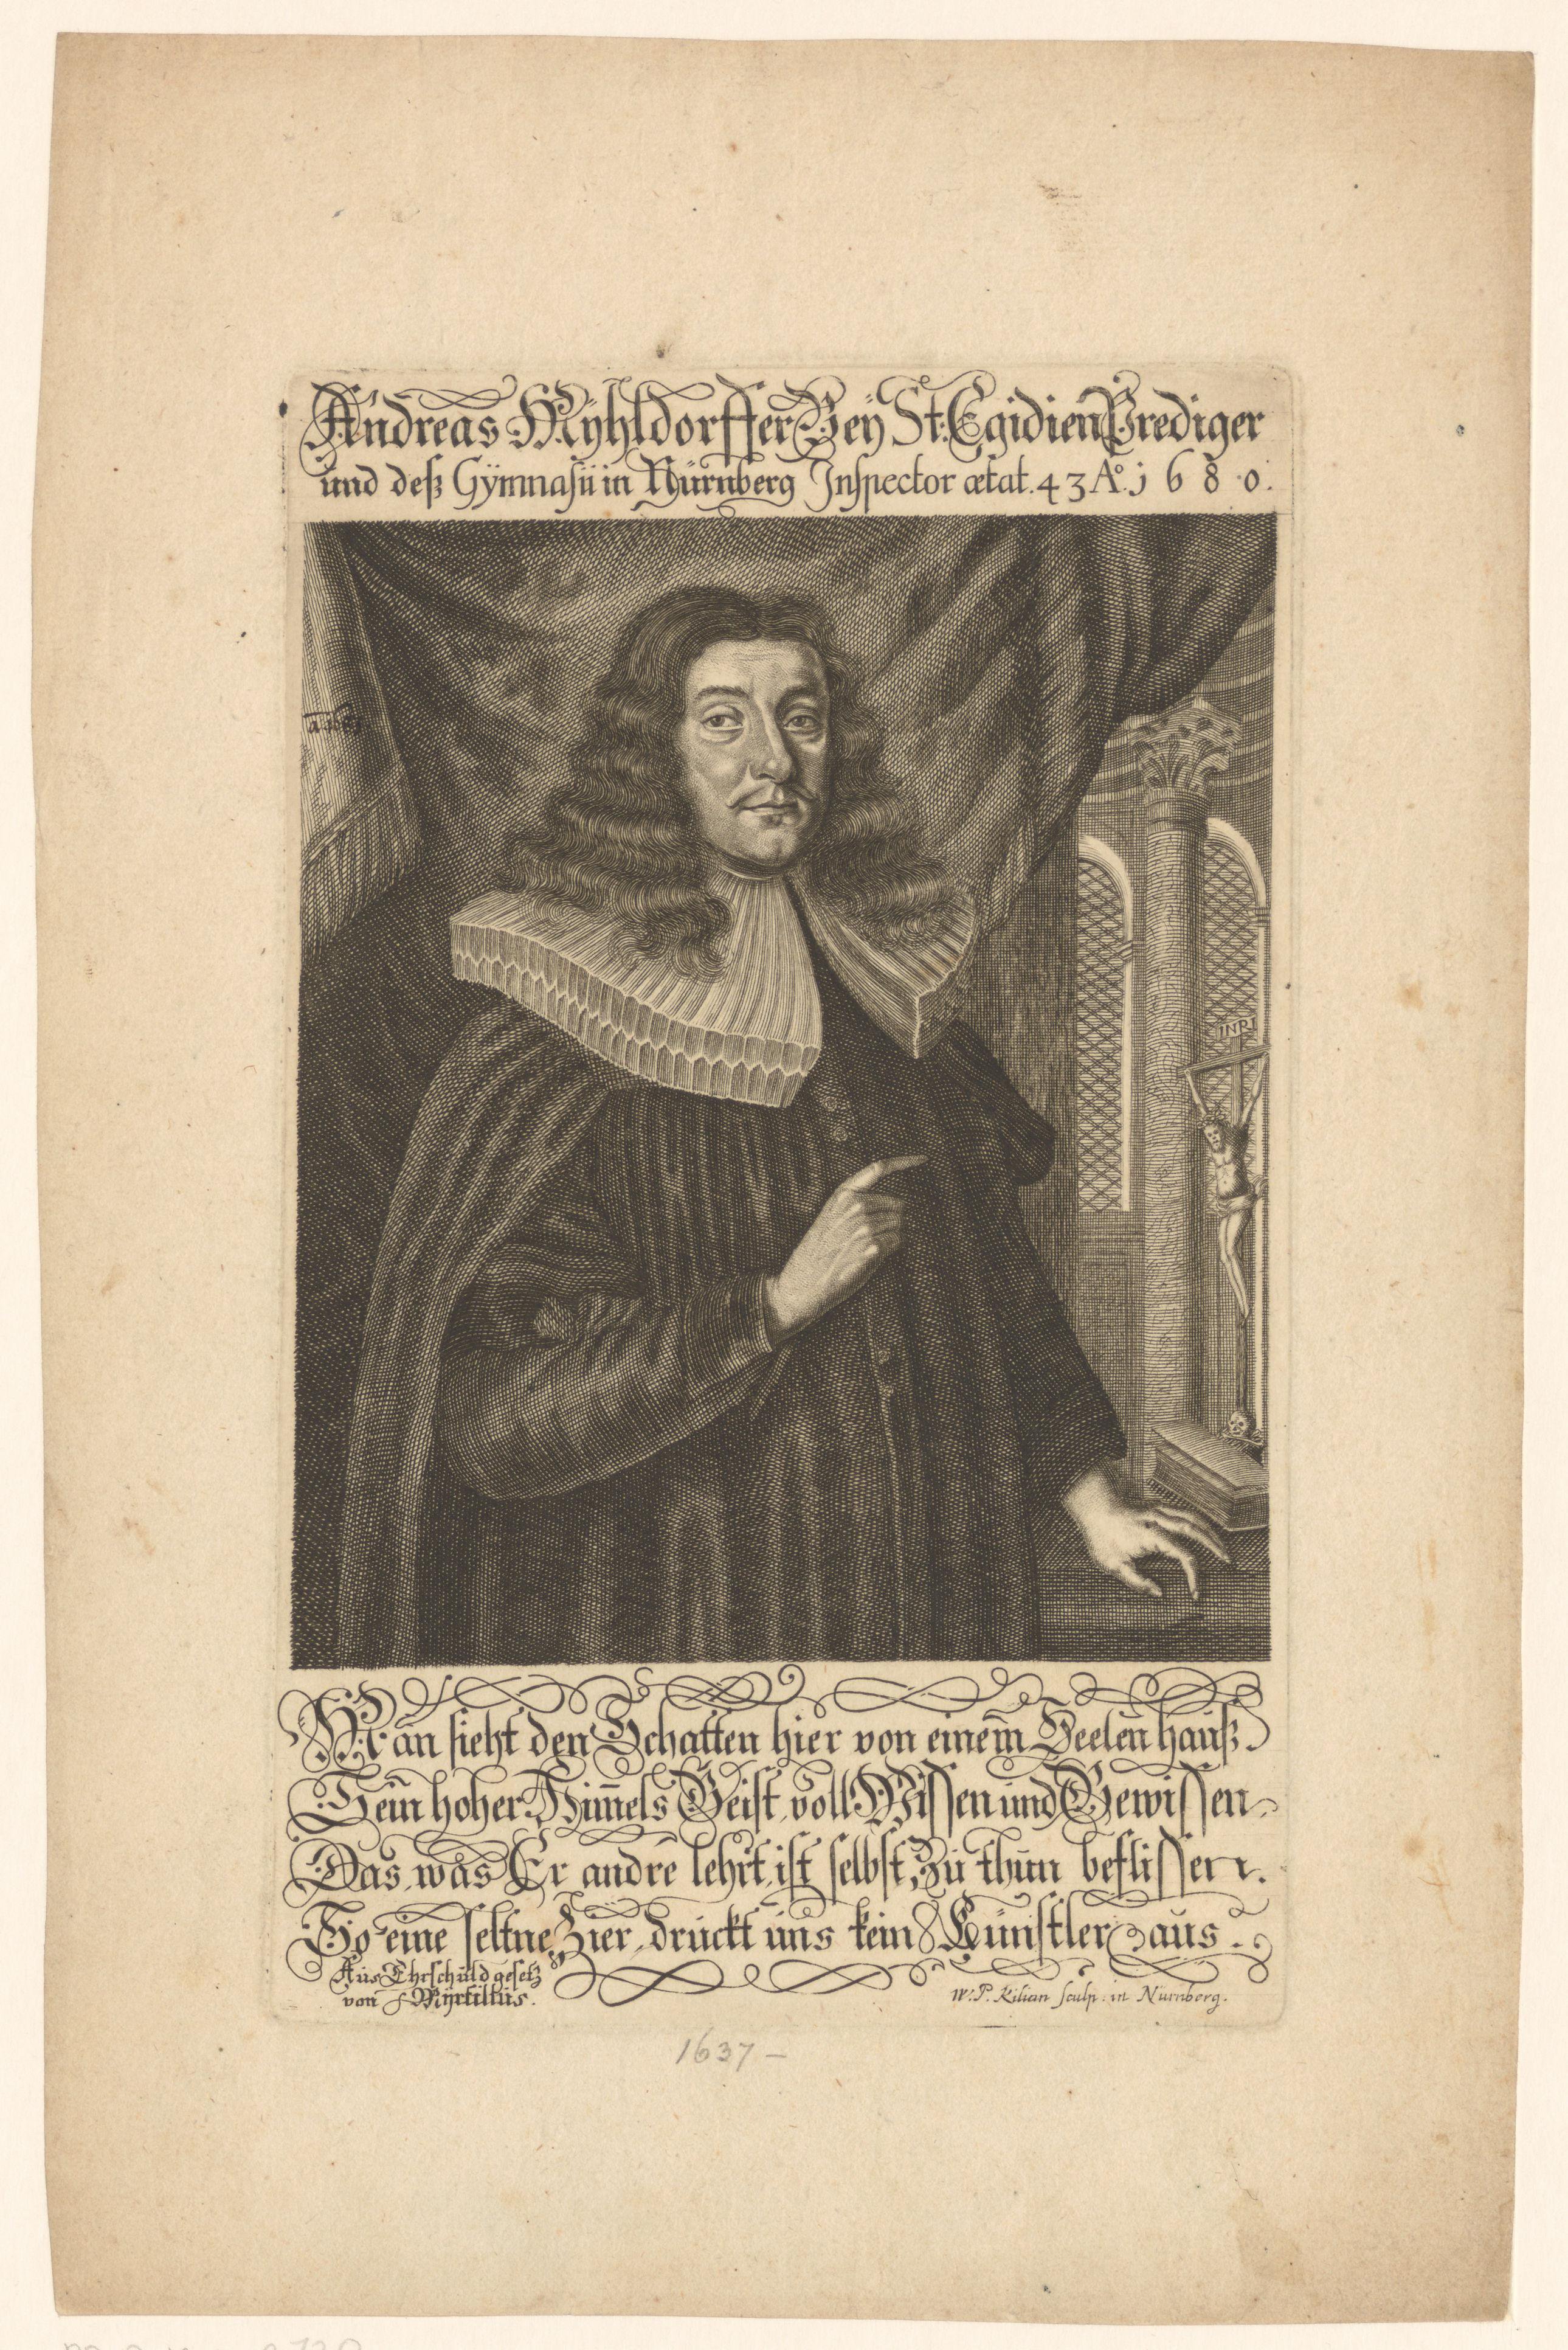 Andreas Mÿhldorffer Beÿ St. Egidien Prediger
und deß Gÿmnasii in Nürnberg Inspector ætat. 43 A.º 1680.
INRI
Man sieht den Schatten hier von einem̄ Seelen hauß.
Sein hoher Him̄els Geist, voll Wissen und Gewissen
Das, was Er andre lehrt, ist selbst, Zu thun beflissen.
So eine seltne Zier, drückt uns kein Künstler aus.
Aus Ehrschuld gesetz
von Mÿrtillus.
W. P. Kilian sculp: in Nürnberg.
1637 –